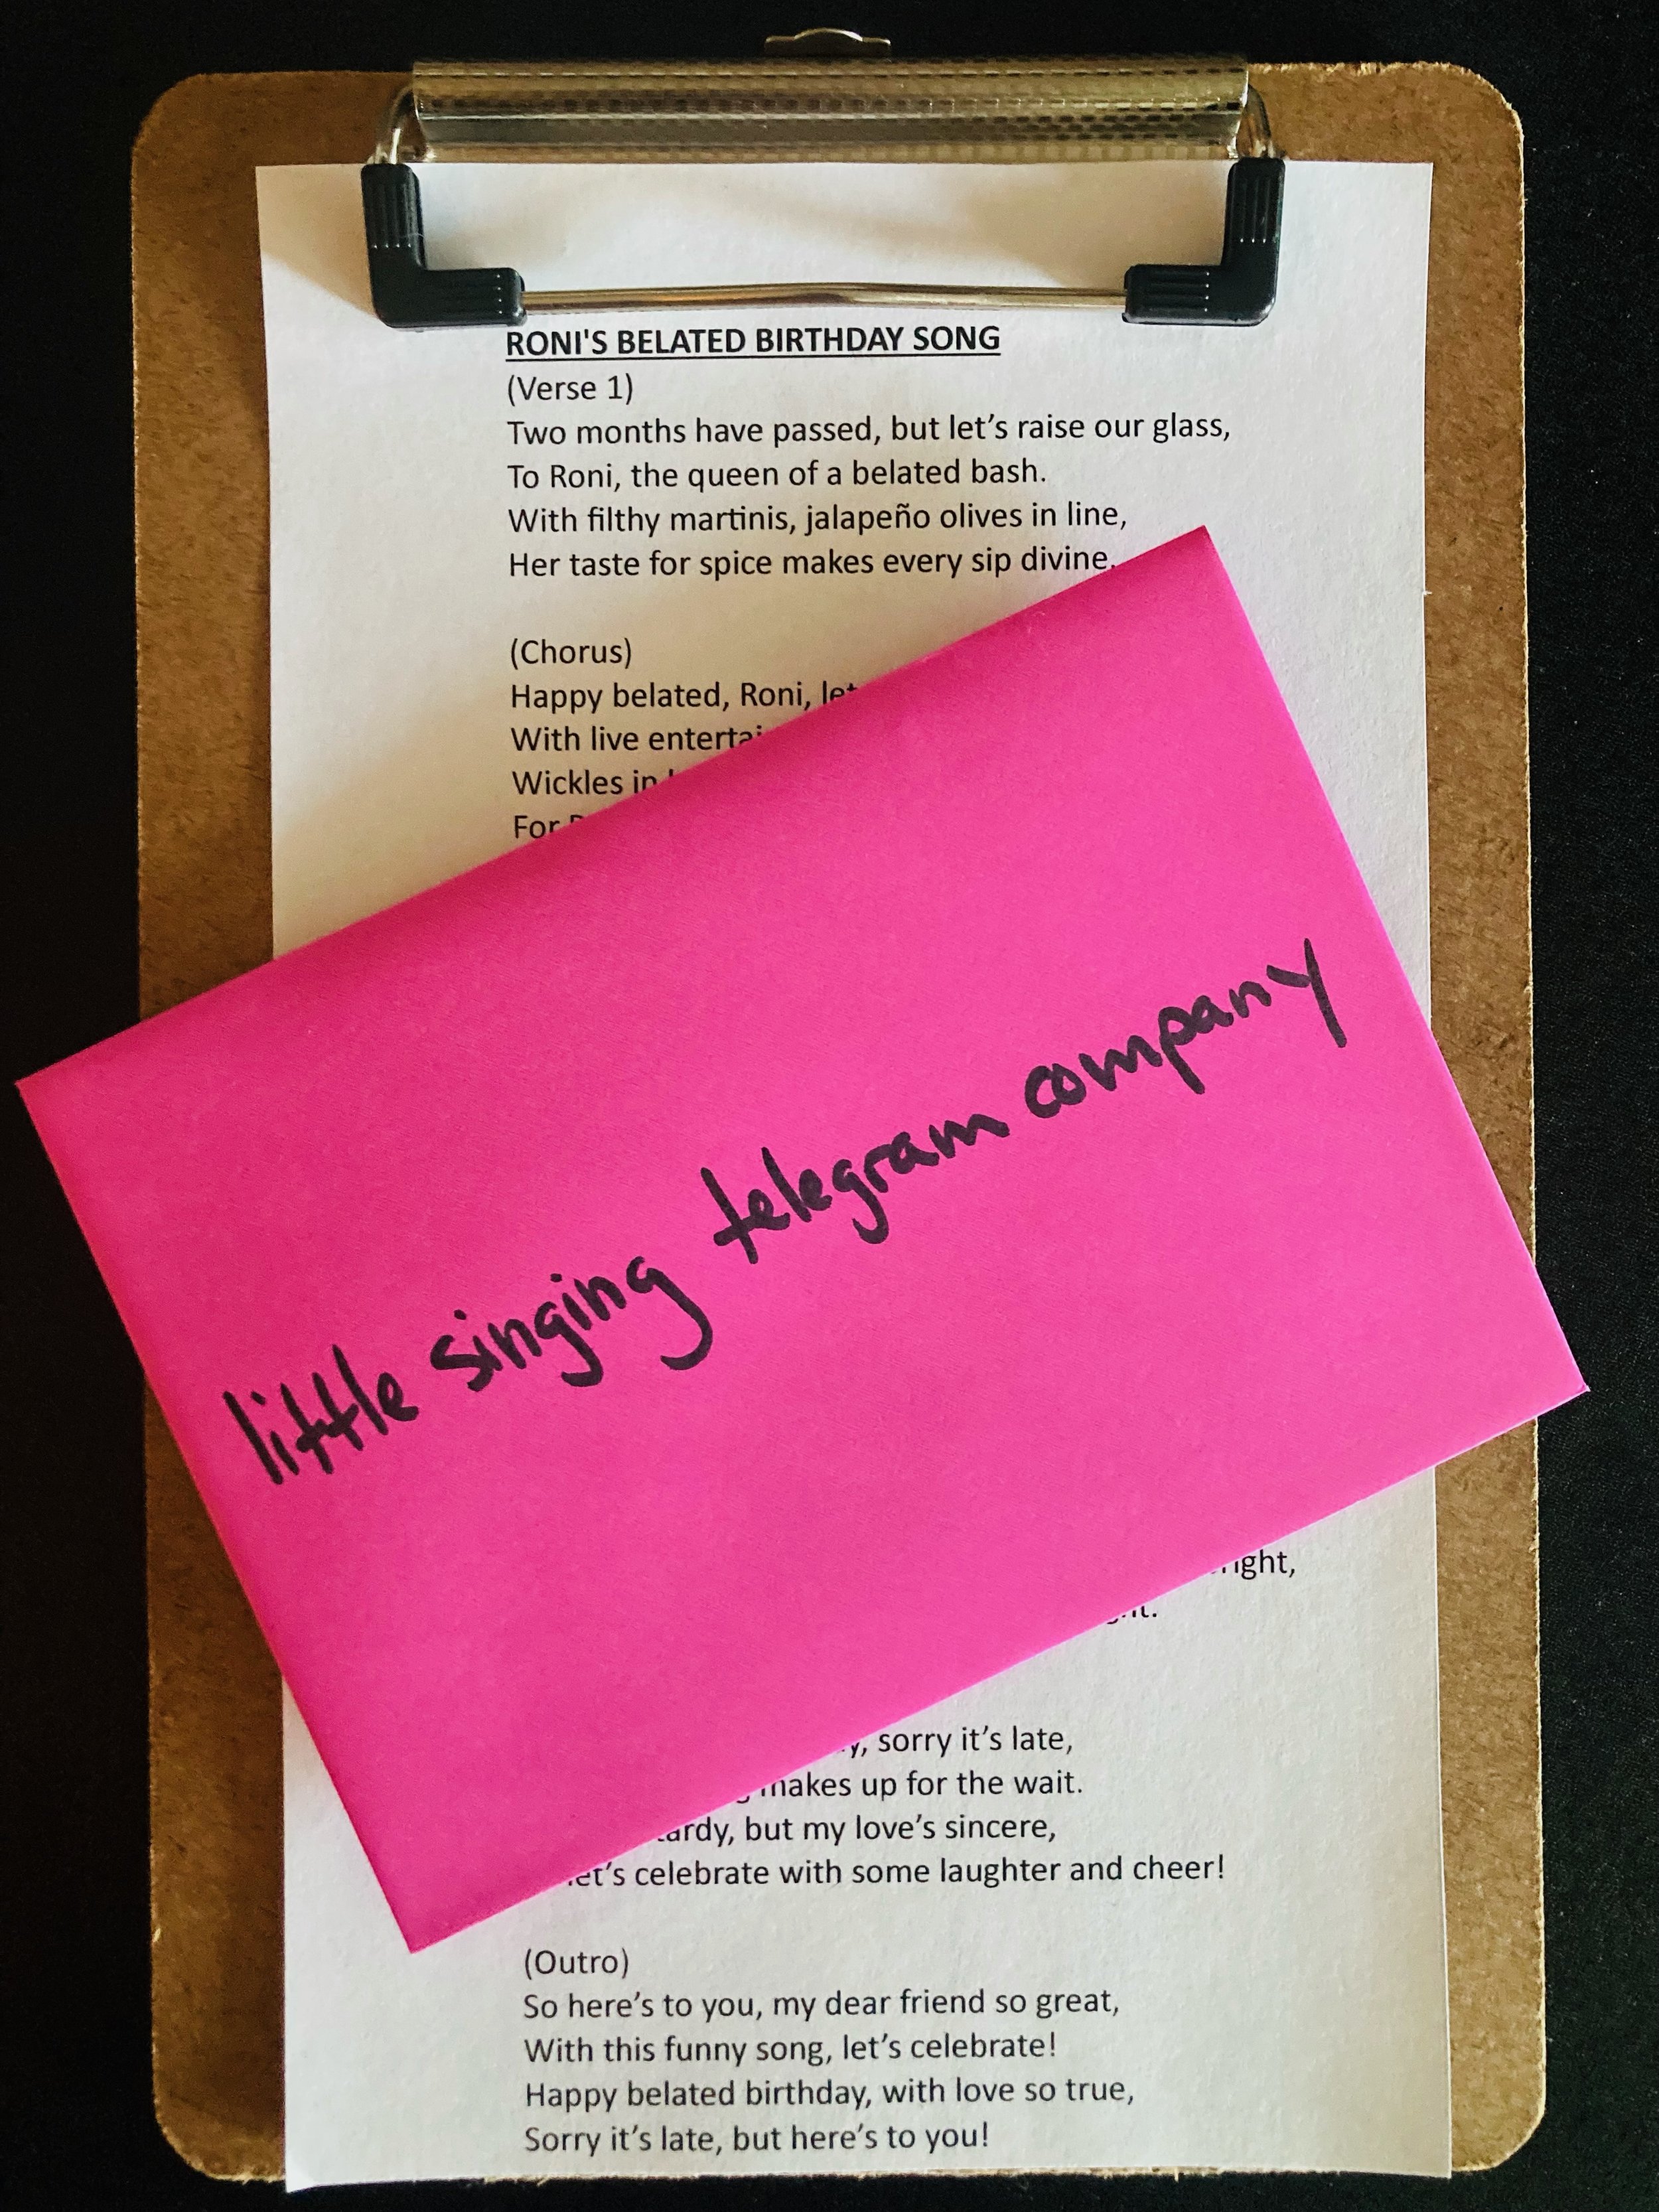 RONI'S BELATED BIRTHDAY SONG
(Verse 1)
Two months have passed, but let’s raise our glass,
To Roni, the queen of a belated bash.
With filthy martinis, jalapeño olives in line,
Her taste for spice makes every sip divine.
(Chorus)
Happy belated, Roni,
With live
Wickles in
For
little singing telegram company
sorry it’s late,
makes up for the wait.
but my love’s sincere,
celebrate with some laughter and cheer!
(Outro)
So here’s to you, my dear friend so great,
With this funny song, let’s celebrate!
Happy belated birthday, with love so true,
Sorry it’s late, but here’s to you!